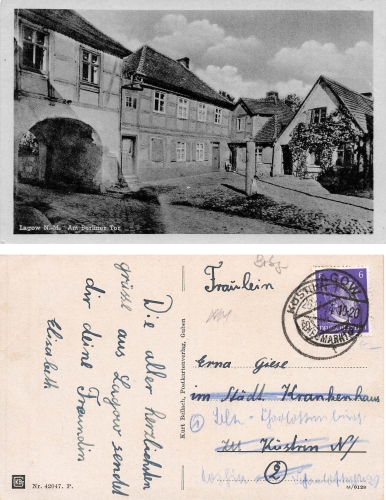 Lagow N.-M. Am Berliner Tor
Die aller herzlichsten
grüße aus Lagow sendet
dir deine Freundin
Elisabeth
Kurt Bolbeth, Postkartenverlag, Guben
Nr. 42047. P.
Fräulein
LAGOW
6
Erna Giese
im Städt. Krankenhaus
Charlottenburg
Küstrin N/
2
M/0128